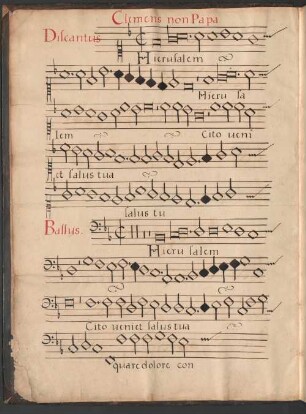 Clemens non Papa
Discantus
Hierusalem
Hieru sa
lem Cito veni
et salus tua
salus tu
Bassus.
Hieru salem
Cito veniet salus tua
quare dolore con